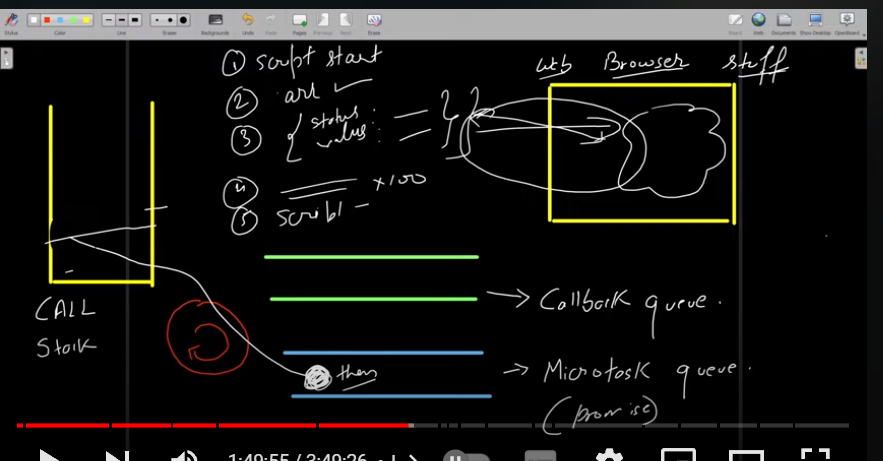 Stylus
Color
Line
Eraser
Backgrounds
Undo
Redo
Pages
Previous
Next
Erase
Board
Web
Documents
Show Desktop
OpenBoard
① script start
②
③ { status :
value :
④ ×100
⑤
web Browser stuff
CALL
Stack
→ Callback queue.
then
→ Microtask queue.
(promise)
1:49:55 / 3:49:26